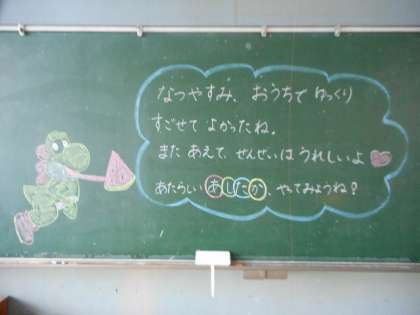 なつやすみ、おうちで ゆっくり
すごせて よかったね。
また あえて、せんせいは うれしいよ
あたらしい あしたか、やってみようね？